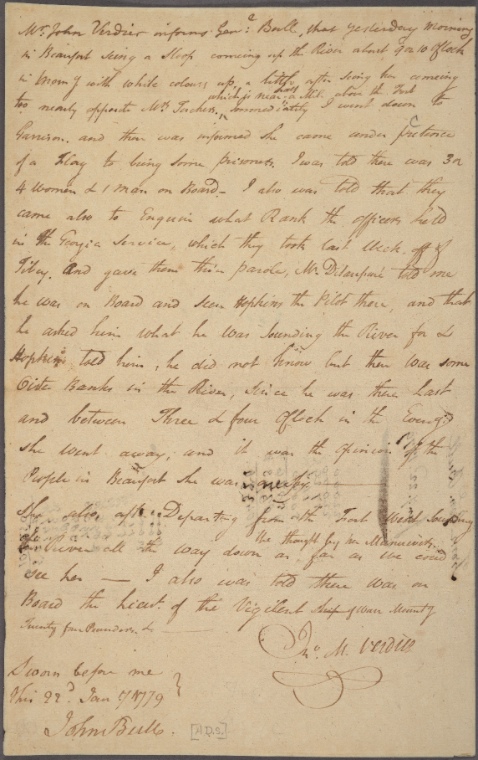 Mr. John Verdier informs Genl. Bull, that yesterday morning
in Beaufort seing a Sloop comeing up the River about 9 or 10 oClock
in Morng with white colours up, a little after seing her comeing
too nearly opposite Mrs. Tuckers, which is near half a Mile above the Fort immediately I went down to
Garrison. and then was informed she came under pretence
of a Flag to bring some prisoners. I was told there was 3 or
4 Women & 1 Man on Board – I also was told that they
came also to Enquire what Rank the officers held
in the Georgia Service, which they took last Week off of
Tibey. and gave them their parole, Mr. told me
he was on Board and seen Hopkins the Pilot there, and that
he asked him what he was sounding the River for &
Hopkins told him, he did not know but there was some
Oister Banks in the River, since he was there last
and between Three & four oClock in the Eveng
she went away, and it was the opinion of the
People in Beaufort she was
She also after Departing from the Fort went sounding
River all the way down as far as we could
We thought by her Manuvers
see her — I also was told there was on
Board the Lieut. of the Vigilent Ship of War Mountg
Twenty four Pounders &c —
Jno. M. Verdier
Sworn before me
this 22d. Jany 1779 }
John Bull.
[A.D.S.]